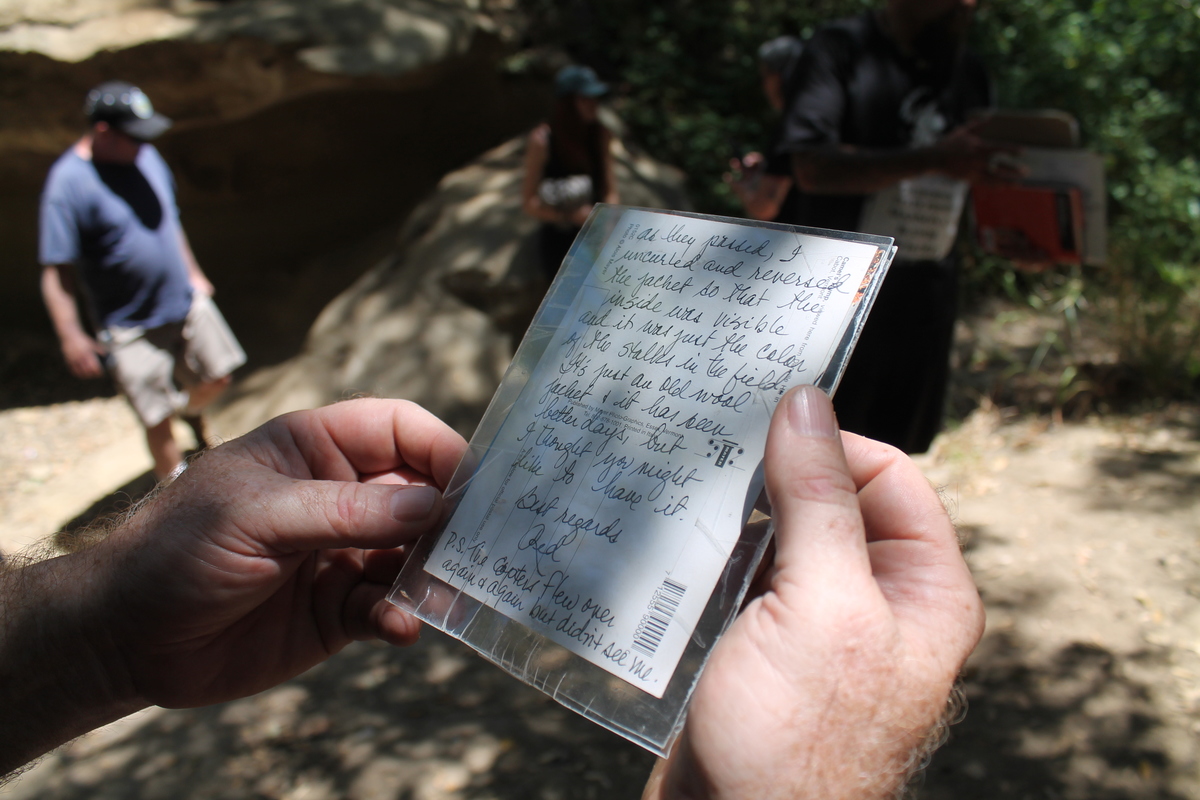 as they passed, I
uncurled and reversed
the jacket so that the
inside was visible
and it was just the color
of the stalks in the field.
It's just an old wool
jacket & it has been
better days, but
I thought you might
like to have it.
Best regards
Red
P.S. The Copters flew over
again & again but didn't see me.